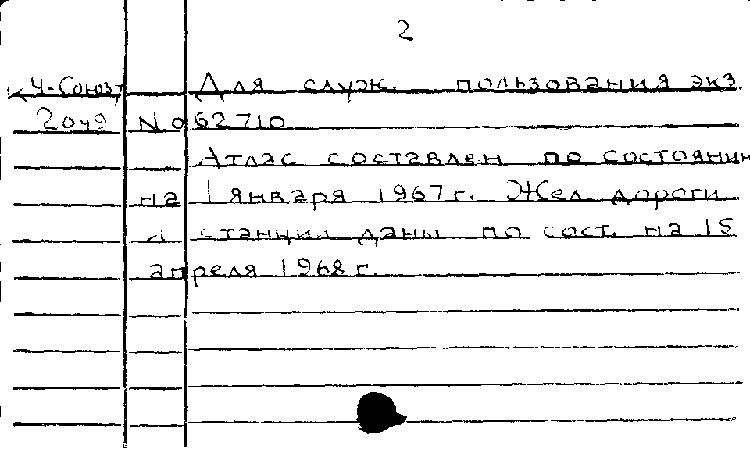 2
К Ч-Союз Для служ. пользования экз.
2049 No 62710
Атлас составлен по состоянию
на 1 января 1967 г. Жел. дороги
и станции даны по сост. на 15
апреля 1968 г.